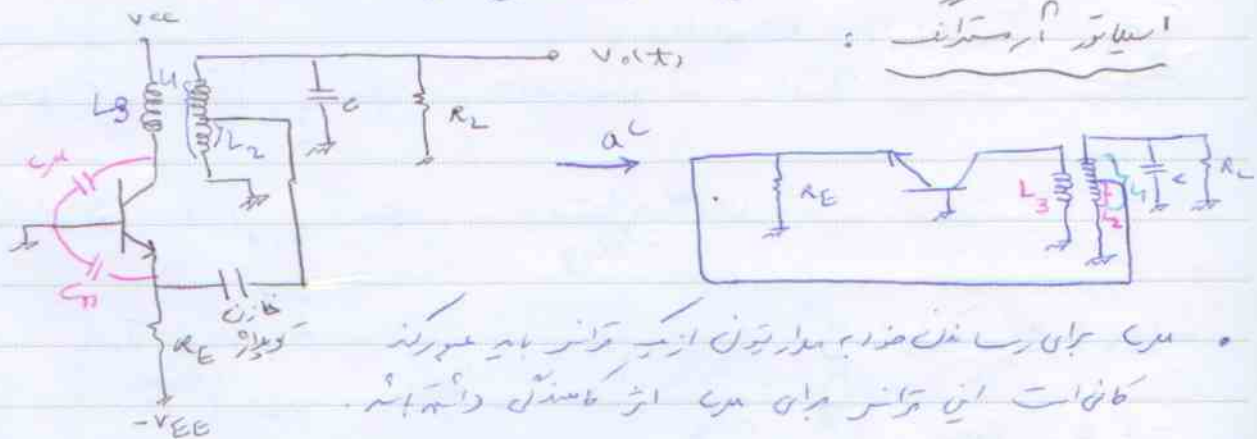 اسیلاتور آرمسترانگ :
Vcc
L3
L1
L2
C
RL
Vo(t)
Cμ
Cπ
خازن
کوپلاژ
RE
-VEE
ac
RE
L3
L1
L2
C
RL
برای رساندن خود به مدار تیون از یک ترانس باید عبور کند
کافی است این ترانس برای اثر کاهندگی داشته باشد.